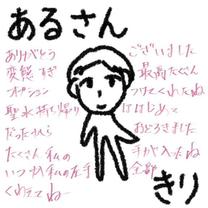 あるさん
ありがとう
ございました
変態すぎ
最高たくさん
オプション
つけてくれたね
聖水持ち帰り
はじめて
だったから
おどろきました
たくさん私の
手が入ったね
いつか私の左手
全部
くわえてねー
きり